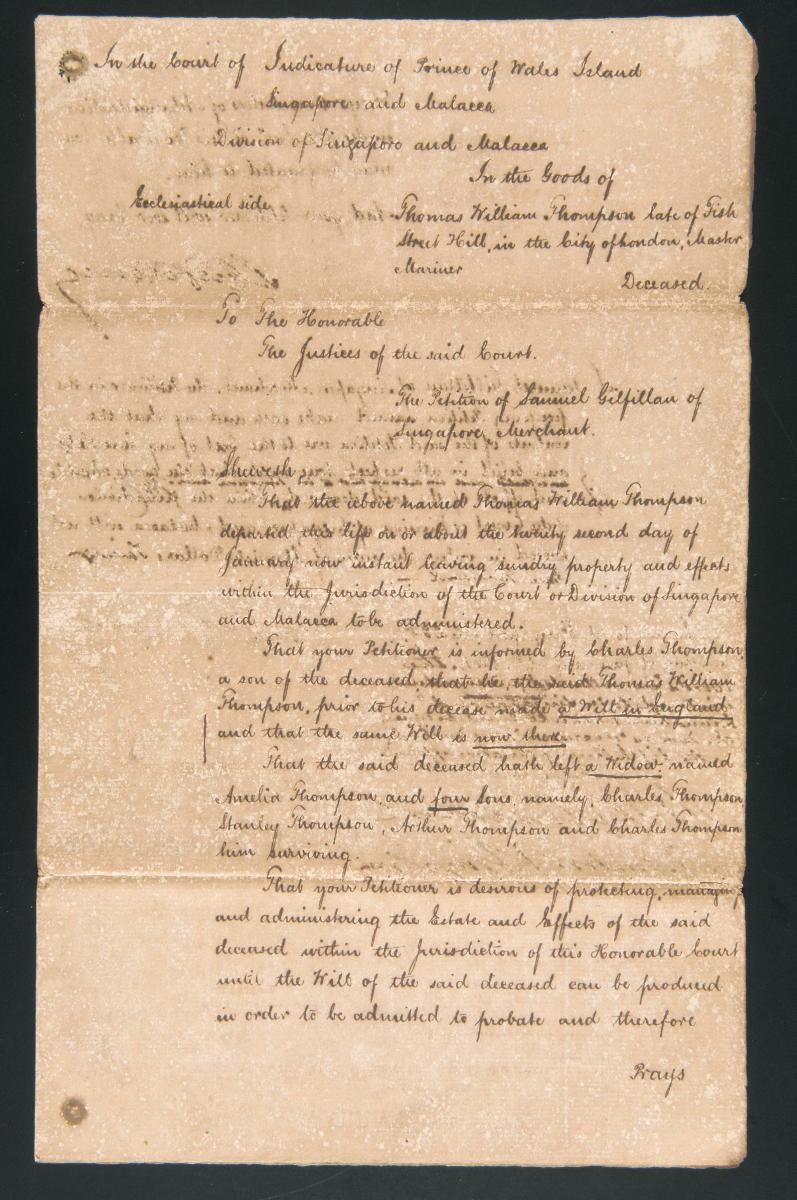 In the Court of Judicature of Prince of Wales Island
Singapore and Malacca
Division of Singapore and Malacca
In the Goods of
Ecclesiastical side
Thomas William Thompson late of Fish
Street Hill, in the City of London, Master
Mariner
Deceased.
To The Honorable
The Justices of the said Court.
The Petition of Samuel Gilfillan of
Singapore, Merchant.
Sheweth
That the above named Thomas William Thompson
departed this life on or about the twenty second day of
January now instant leaving sundry property and effects
within the Jurisdiction of the Court or Division of Singapore
and Malacca to be administered.
That your Petitioner is informed by Charles Thompson,
a son of the deceased, that he, the said Thomas William
Thompson, prior to his decease made a Will in England,
and that the same Will is now there.
That the said deceased hath left a Widow, named
Amelia Thompson, and four Sons, namely, Charles Thompson,
Stanley Thompson, Arthur Thompson and Charles Thompson
him surviving.
That your Petitioner is desirous of protecting, managing
and administering the Estate and Effects of the said
deceased within the Jurisdiction of this Honorable Court
until the Will of the said deceased can be produced
in order to be admitted to probate and therefore
Prays